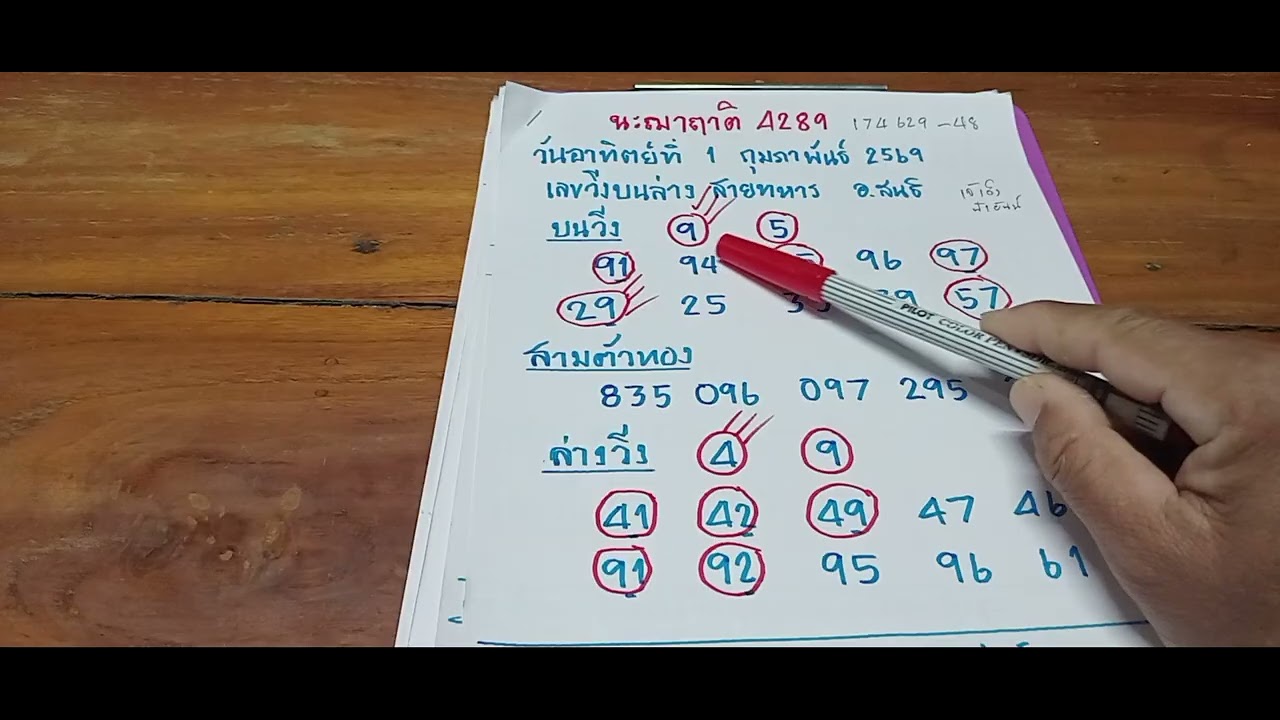 นะฌาฤาติ 4289 174629-48
วันอาทิตย์ที่ 1 กุมภาพันธ์ 2569
เลขวิ่งบนล่าง สายทหาร อ.สนธิ
บนวิ่ง 9 5
91 94 96 97
29 25 57
สามตัวทอง
835 096 097 295
ล่างวิ่ง 4 9
41 42 49 47 46
91 92 95 96 61
PILOT COLOR PEN